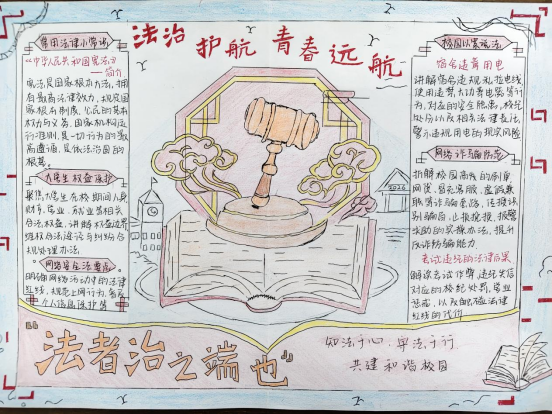 法治 护航 青春远航
常用法律小常识
《中华人民共和国宪法》
——简介
宪法是国家根本大法，拥
有最高法律效力，规定国
家根本制度、公民的基本
权力与义务、国家机构运
行准则，是一切行为的最
高遵循，是依法治国的
根基。
大学生权益保护
聚焦大学生在校期间人身
财产、学业、就业等相关
合法权益，讲解权益边界
维权合法途径与纠纷合
规处理办法。
网络安全法要点
明确网络活动中的法律
红线，规范上网行为，
个人信息保护等
校园以案说法
宿舍违章用电
讲解宿舍违规私拉电线
使用违禁大功率电器等行
为，对应的安全隐患，校纪
处分以及相关法律责任，
警示违规用电的现实风险
网络诈骗防范
拆解校园高发的刷单
网贷，冒充客服，虚假兼
职等诈骗套路，传授识
别骗局，止损挽损，报警
求助的实操办法，提升
反诈防骗能力
考试违纪的法律后果
解读考试作弊，违纪失信
对应的校纪处罚，学业
惩戒，以及触碰法律
红线的代价
2026
"法者治之端也"
知法于心，守法于行
共建和谐校园